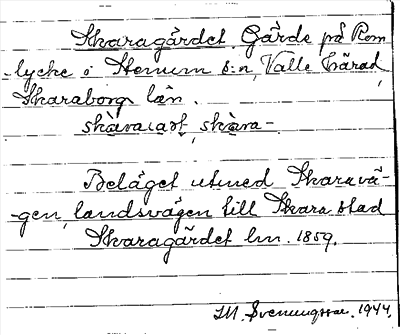 Skaragärdet. Gärde på Rom
lycke i Stenum s:n, Valle härad,
Skaraborg län.
Beläget utmed Skaravä-
-gen, landsvägen till Skara stad
Skaragärdet lm. 1859.
Svenungsson. 1944.